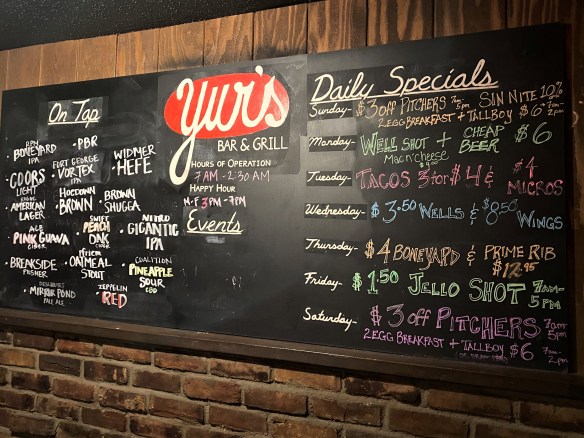 On Tap
RPM
BONEYARD
IPA
PBR
WIDMER
HEFE
COORS
LIGHT
FORT GEORGE
VORTEX
IPA
AMERICAN
LAGER
HOEDOWN
BROWN
BROWN
SHUGGA
ACE
PINK GUAVA
CIDER
SWIFT
PEACH
OAK
CIDER
NITRO
GIGANTIC
IPA
BREAKSIDE
PILSNER
OATMEAL
STOUT
COALITION
PINEAPPLE
SOUR
CBD
DESCHUTES
MIRROR POND
PALE ALE
ZEPPELIN
RED
Yur's
BAR & GRILL
HOURS OF OPERATION
7AM - 2:30 AM
HAPPY HOUR
M-F 3PM - 7PM
Events
Daily Specials
Sunday- $3 off PITCHERS 7am 5pm SIN NITE 10%
2EGG BREAKFAST + TALLBOY $6 7am- 2pm
Monday- WELL SHOT + CHEAP BEER $6
MAC N' CHEESE
Tuesday- TACOS 3 for $4 & $4 MICROS
Wednesday- $3.50 WELLS & $8.50 WINGS
Thursday- $4 BONEYARD & PRIME RIB
$12.95
Friday- $1.50 JELLO SHOT 7am- 5PM
Saturday- $3 off PITCHERS 7am 5pm
2EGG BREAKFAST + TALLBOY $6 7am- 2pm